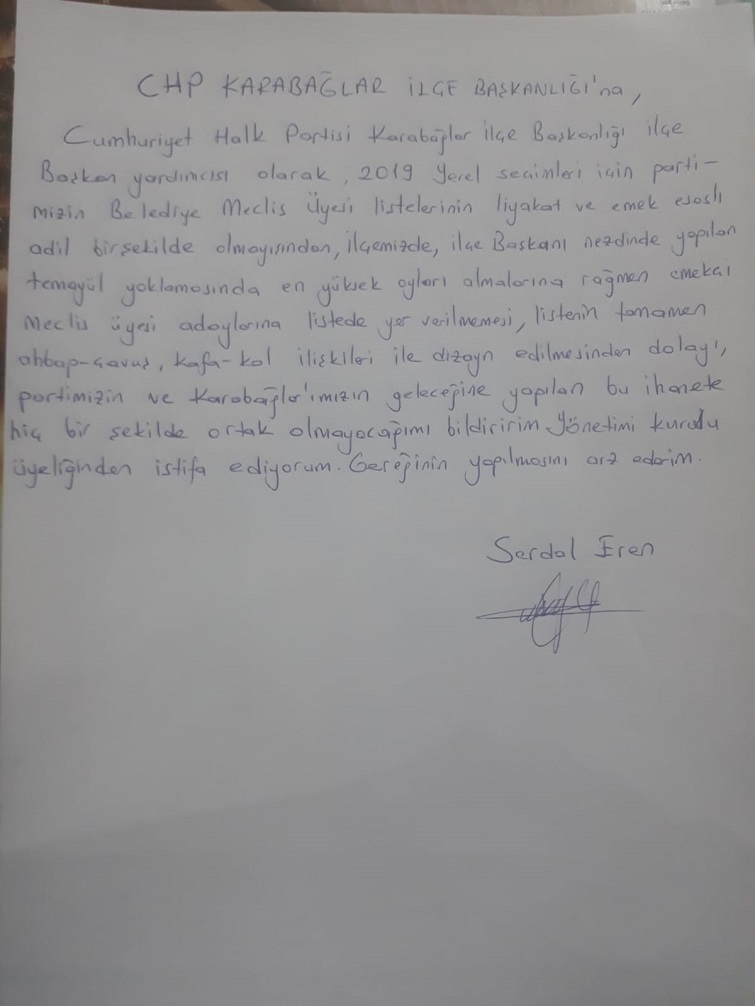 CHP KARABAĞLAR İLÇE BAŞKANLIĞI'na,
Cumhuriyet Halk Partisi Karabağlar İlçe Başkanlığı İlçe
Başkan yardımcısı olarak, 2019 Yerel seçimleri için parti-
mizin Belediye Meclis Üyesi listelerinin liyakat ve emek esaslı
adil birşekilde olmayışından, ilçemizde, ilçe Başkanı nezdinde yapılan
temayül yoklamasında en yüksek oyları almalarına rağmen emekçi
Meclis üyesi adaylarına listede yer verilmemesi, listenin tamamen
ahbap-çavuş, kafa-kol ilişkileri ile dizayn edilmesinden dolayı,
partimizin ve Karabağlar'ımızın geleceğine yapılan bu ihanete
hiç bir şekilde ortak olmayacağımı bildiririm. Yönetimi kurulu
üyeliğinden istifa ediyorum. Gereğinin yapılmasını arz ederim.
Serdal Eren